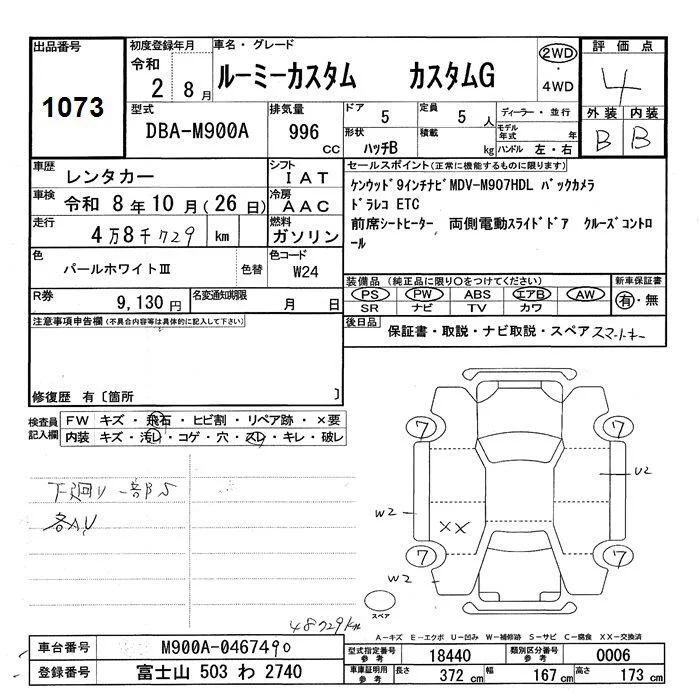 出品番号
1073
初度登録年月
令和 2 8月
車名・グレード
ルーミーカスタム カスタムG
2WD
・
4WD
評価点
4
型式
DBA-M900A
排気量
996 CC
ドア 5
定員 5 人
ディーラー・並行
形状 ハッチB
積載 kg
モデル年式 年
ハンドル 左・右
外装 内装
B B
車歴 レンタカー
シフト IAT
車検 令和 8年 10月 (26日)
冷房 AAC
走行 4万8千729 km
燃料 ガソリン
色 パールホワイトⅢ 色替
色コード W24
R券 9,130 円
名変通知期限 月 日
セールスポイント(正常に機能するものに限ります)
ケンウッド9インチナビMDV-M907HDL バックカメラ
ドラレコ ETC
前席シートヒーター 両側電動スライドドア クルーズコントロ
ール
装備品 (純正品に限り○をつけてください)
PS PW ABS エアB AW
SR ナビ TV カワ
新車保証書
有・無
後日品
保証書・取説・ナビ取説・スペアスマートキー
注意事項申告欄(不具合内容等は具体的に記入して下さい)
修復歴 有〔箇所 〕
検査員
記入欄
FW キズ・飛石・ヒビ割・リペア跡・×要
内装 キズ・汚レ・コゲ・穴・スレ・キレ・破レ
下廻り一部BS
各AU
48729km
7 7
7 7
U2
W2
XX
W2
スペア
A-キズ E-エクボ U-凹み W-補修跡 S-サビ C-腐食 XX-交換済
車台番号 M900A-0467490
登録番号 富士山 503 わ 2740
型式指定番号
参考
18440
類別区分番号
参考
0006
車両証明用
参考
長さ 372 cm
幅 167 cm
高さ 173 cm